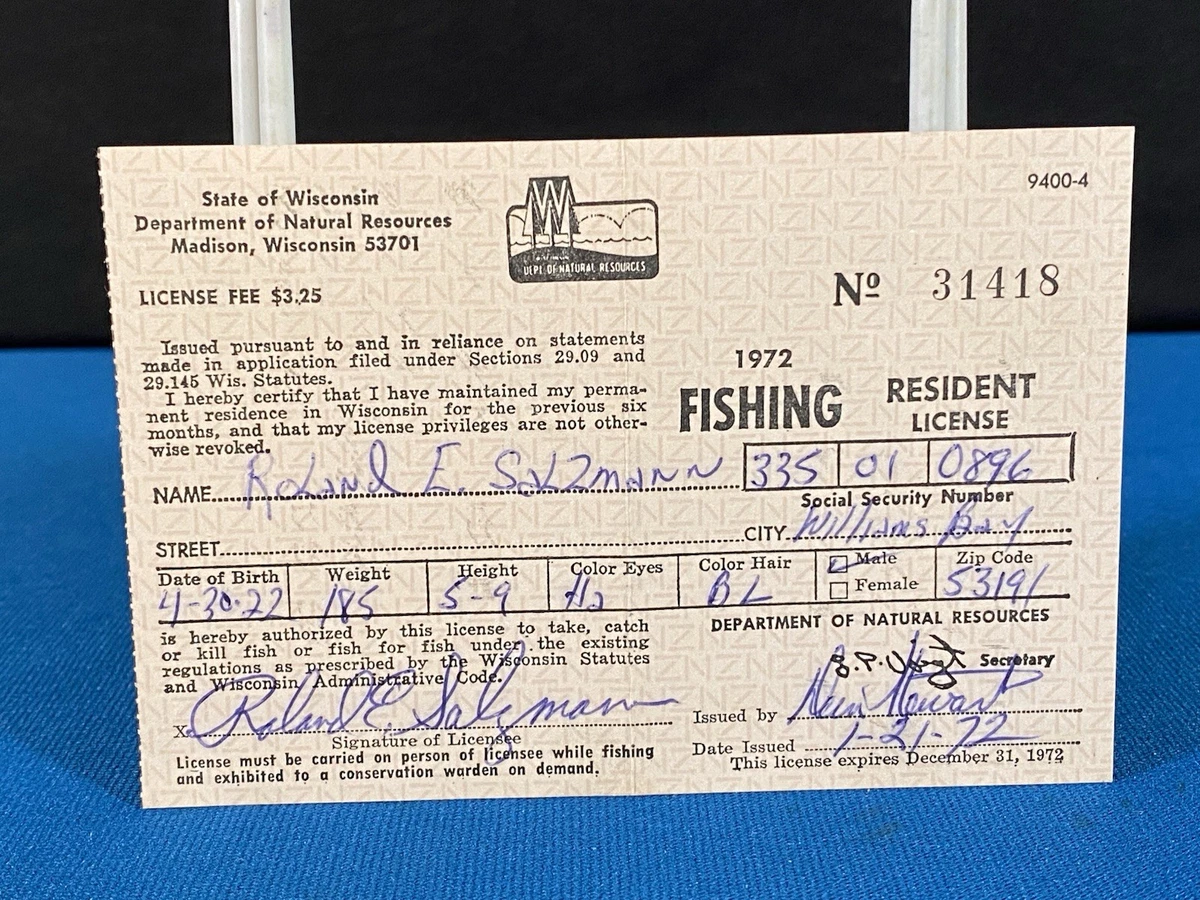 State of Wisconsin
Department of Natural Resources
Madison, Wisconsin 53701
W
DEPT. OF NATURAL RESOURCES
9400-4
LICENSE FEE $3.25
Nº 31418
Issued pursuant to and in reliance on statements
made in application filed under Sections 29.09 and
29.145 Wis. Statutes.
I hereby certify that I have maintained my perma-
nent residence in Wisconsin for the previous six
months, and that my license privileges are not other-
wise revoked.
1972
FISHING
RESIDENT
LICENSE
NAME Roland E. Salzmann
335 01 0896
Social Security Number
STREET
CITY Williams Bay
Date of Birth 4-30-22
Weight 185
Height 5-9
Color Eyes
Color Hair BL
Male
Female
Zip Code 53191
is hereby authorized by this license to take, catch
or kill fish or fish for fish under the existing
regulations as prescribed by the Wisconsin Statutes
and Wisconsin Administrative Code.
DEPARTMENT OF NATURAL RESOURCES
Secretary
X Roland E. Salzmann
Signature of Licensee
Issued by
Date Issued 1-21-72
License must be carried on person of licensee while fishing
and exhibited to a conservation warden on demand.
This license expires December 31, 1972